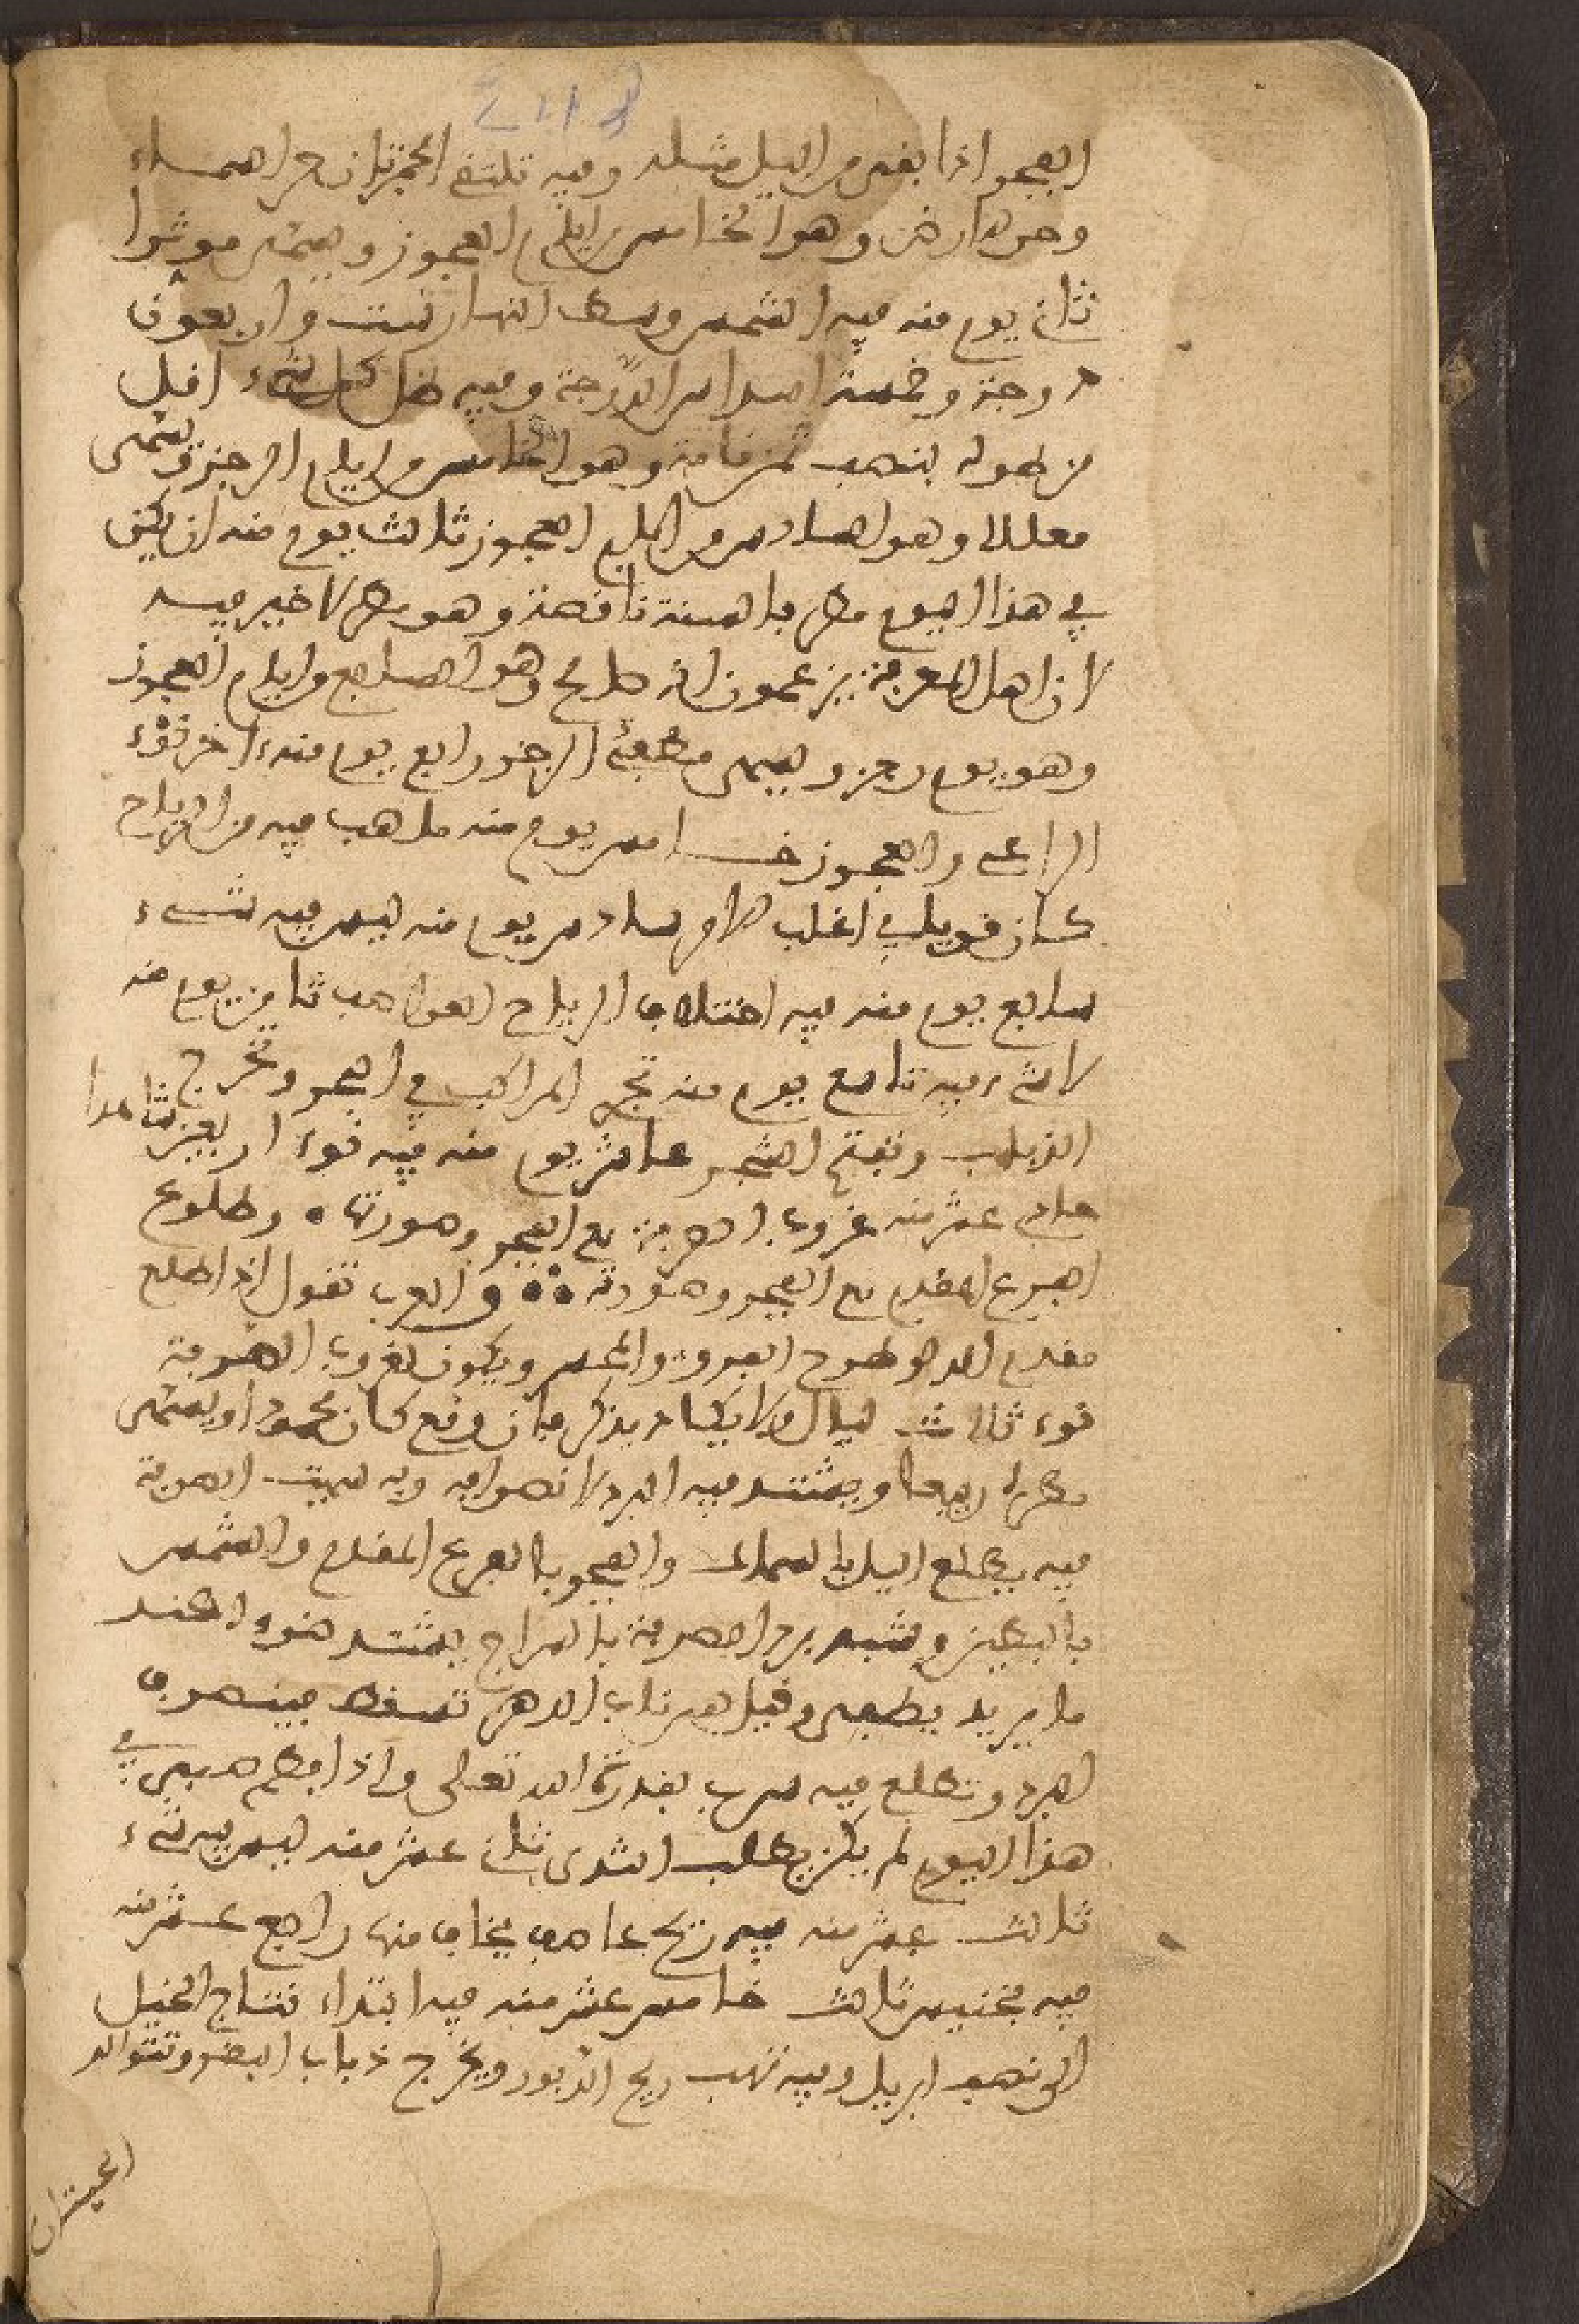 الفجر اذا بقى من الليل مثله وفيه تلتقى الجمرتان حر السماء
وحر الارض وهو الخامس من ايام العجوز ويسمى موترا
ثانى يوم منه فيه الشمس وسط النهار ست واربعون
درجة وخمسة اسداس الدرجة وفيه ظل كل شىء اقل
من طوله بنصف قامة وهو الخامس من ايام الرجز ويسمى
معللا وهو السادس من ايام العجوز ثالث يوم منه ان يكن
في هذا اليوم مطر فالسنة ناقصة وهو مطر لا خير فيه
لان اهل المعرفة يزعمون انه مالح وهو السابع من ايام العجوز
وهو يوم رجز ويسمى مطفئ الرضف رابع يوم منه اخر نوء
الراعى والعجوز خامس يوم منه ما هب فيه من الرياح
كان قويا في اغلب الامر سادس يوم منه ليس فيه شىء
سابع يوم منه فيه اختلاف الرياح العواصف ثامن يوم منه
لا شىء فيه تاسع يوم منه تجرى المراكب في البحر وتخرج
الذباب وتفتح الشجر عاشر يوم منه فيه نوء اربعين شاهدا
حادى عشر منه غروب الصرفة مع الفجر وصورتها • وطلوع
الفرع المقدم مع الفجر وصورته •• والعرب تقول اذا طلع
مقدم الدلو طرح الفرو والحسر ويكون لغروب الصرفة
نوء ثلاث ليال ولا يكاد يذكر فان وقع كان محمودا ويسمى
مطره ربيعا ويشتد فيه البرد لانصرافه وبه سميت الصرفة
فيه يطلع الليل بالسماك والفجر بالفرع المقدم والشمس
بالبطين وشبه برد الصرفة بالسراج يشتد ضوءه عند
ما يريد يطفى وقيل هى ناب الدهر تسقط فينصرف
البرد وتطلع فيه سرب بقدرة الله تعالى واذا فطم صبى في
هذا اليوم لم يكن يطلب الثدى ثانى عشر منه ليس فيه شىء
ثالث عشر منه فيه ريح عاصف يخاف منها رابع عشر منه
فيه مخنيس ثالث خامس عشر منه فيه ابتداء نتاج الخيل
الى نصف ابريل وفيه تهب ريح الدبور ويخرج ذباب البقر وتتوالد
الحيتان